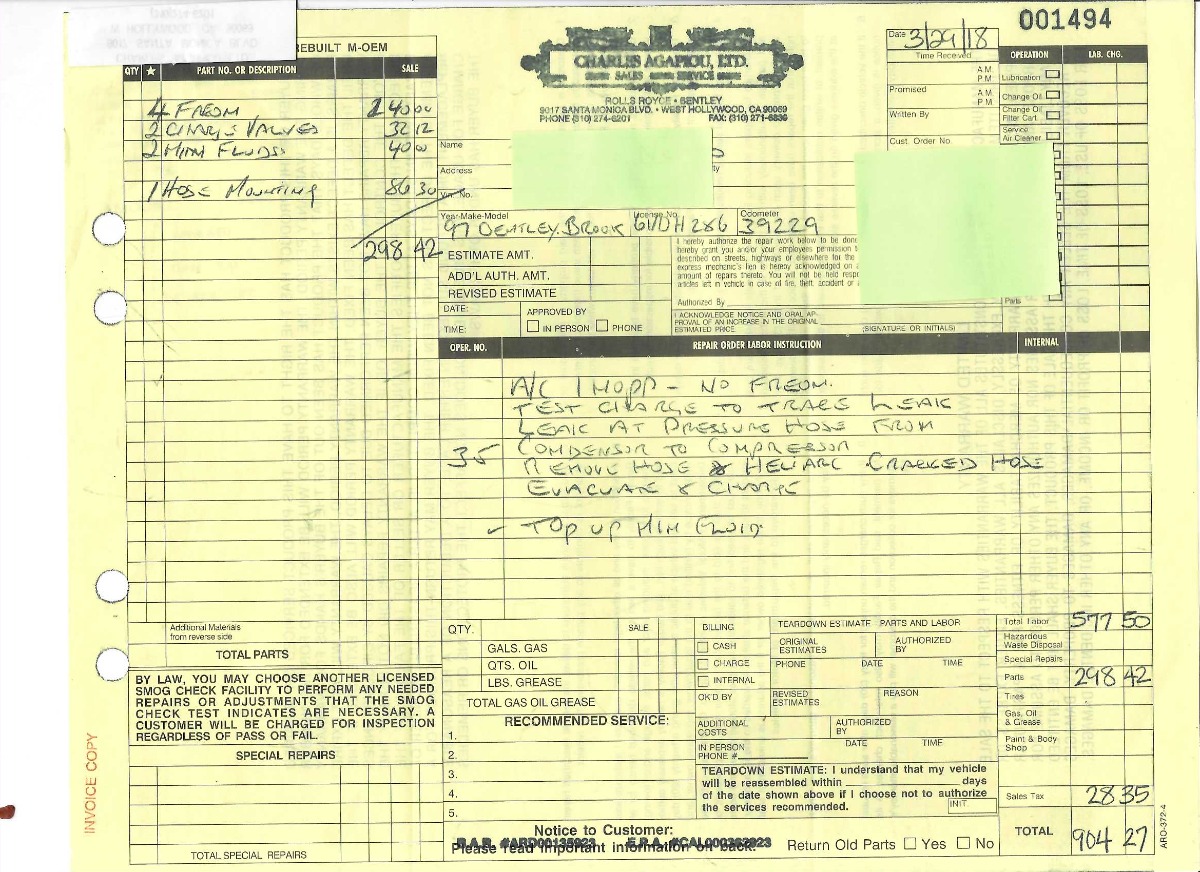 001494
REBUILT M-OEM
QTY ★ PART NO. OR DESCRIPTION SALE
4 FREON 140 00
2 CHARG VALVES 32 12
2 HIM FLUIDS 40 00
1 HOSE MOUNTING 86 30
298 42
CHARLES AGAPIOU, LTD.
SALES SERVICE
ROLLS ROYCE • BENTLEY
9017 SANTA MONICA BLVD. • WEST HOLLYWOOD, CA 90069
PHONE (310) 274-6201 FAX: (310) 271-6836
Date 3/29/18
Time Received
A.M.
P.M.
Promised A.M.
P.M.
Written By
Cust. Order No.
OPERATION LAB. CHG.
Lubrication
Change Oil
Change Oil
Filter Cart
Service
Air Cleaner
Parts
Name
Address
Vin. No.
Year-Make-Model License No. Odometer
97 BENTLEY BROOK 39229
ESTIMATE AMT.
ADD'L AUTH. AMT.
REVISED ESTIMATE
DATE: APPROVED BY
TIME: IN PERSON PHONE
I hereby authorize the repair work below to be done
hereby grant you and/or your employees permission t
described on streets, highways or elsewhere for the
express mechanic's lien is hereby acknowledged on a
amount of repairs thereto. You will not be held resp
articles left in vehicle in case of fire, theft, accident or a
Authorized By
I ACKNOWLEDGE NOTICE AND ORAL AP-
PROVAL OF AN INCREASE IN THE ORIGINAL
ESTIMATED PRICE. (SIGNATURE OR INITIALS)
OPER. NO. REPAIR ORDER LABOR INSTRUCTION INTERNAL
A/C INOPP - NO FREON.
TEST CHARGE TO TRACE LEAK
LEAK AT PRESSURE HOSE FROM
35 CONDENSOR TO COMPRESSOR
REMOVE HOSE & HELIARC CRACKED HOSE
EVACUATE & CHARGE
TOP UP HIM FLUID.
Additional Materials
from reverse side
TOTAL PARTS
BY LAW, YOU MAY CHOOSE ANOTHER LICENSED
SMOG CHECK FACILITY TO PERFORM ANY NEEDED
REPAIRS OR ADJUSTMENTS THAT THE SMOG
CHECK TEST INDICATES ARE NECESSARY. A
CUSTOMER WILL BE CHARGED FOR INSPECTION
REGARDLESS OF PASS OR FAIL.
SPECIAL REPAIRS
TOTAL SPECIAL REPAIRS
INVOICE COPY
QTY. SALE
GALS. GAS
QTS. OIL
LBS. GREASE
TOTAL GAS OIL GREASE
RECOMMENDED SERVICE:
1.
2.
3.
4.
5.
BILLING
CASH
CHARGE
INTERNAL
TEARDOWN ESTIMATE PARTS AND LABOR
ORIGINAL
ESTIMATES
AUTHORIZED
BY
PHONE DATE TIME
OK'D BY REVISED
ESTIMATES
REASON
ADDITIONAL
COSTS
AUTHORIZED
BY
IN PERSON
PHONE #
DATE TIME
TEARDOWN ESTIMATE: I understand that my vehicle
will be reassembled within days
of the date shown above if I choose not to authorize
the services recommended. INIT.
Total Labor 577 50
Hazardous
Waste Disposal
Special Repairs
Parts 298 42
Tires
Gas, Oil
& Grease
Paint & Body
Shop
Sales Tax 28 35
TOTAL 904 27
Notice to Customer:
Please read important information on back.
Return Old Parts Yes No
ARO-372-4